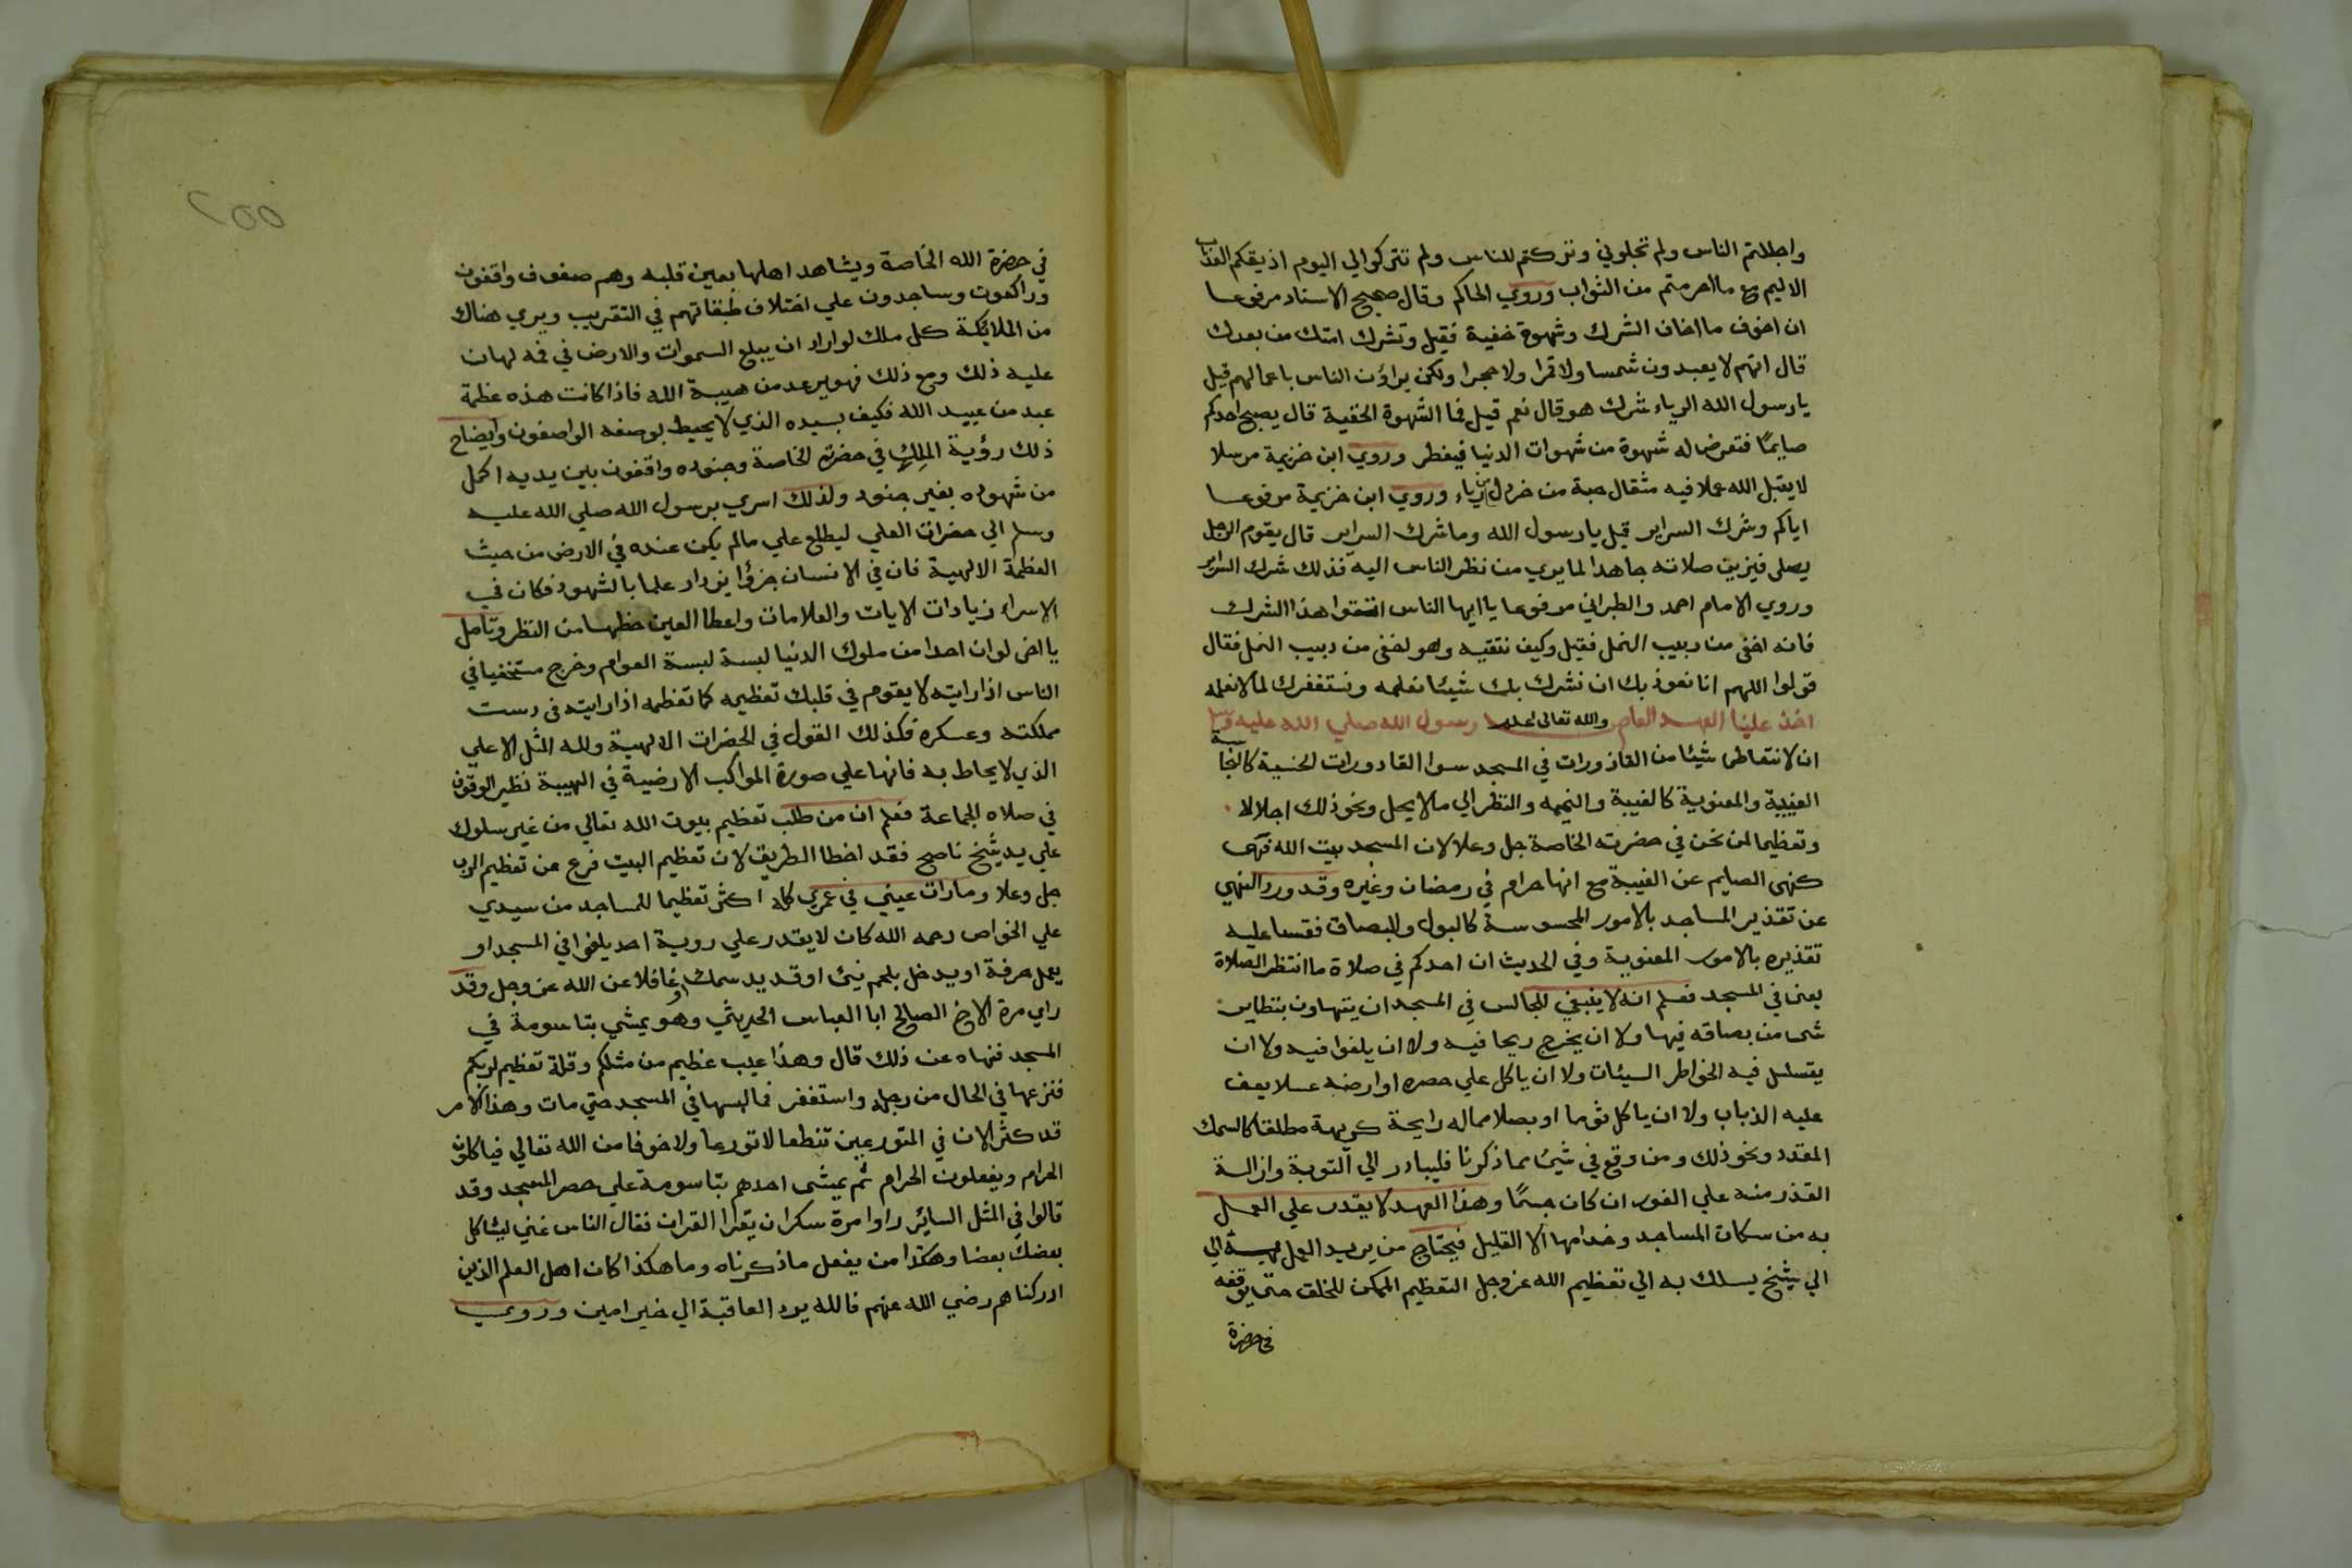 واجللتم الناس ولم تجلوني وتركتم للناس ولم تتركوا لي اليوم اذيقكم العذاب
الاليم مع ما احرمتم من الثواب وروي الحاكم وقال صحيح الاسناد مرفوعا
ان اخوف ما اخاف الشرك وشهوة خفية فقيل وتشرك امتك من بعدك
قال انهم لا يعبدون شمسا ولا قمرا ولا حجرا ولكن يراؤن الناس باعمالهم قيل
يا رسول الله الرياء شرك هو قال نعم قيل فما الشهوة الخفية قال يصبح احدكم
صايمًا فتعرض له شهوة من شهوات الدنيا فيفطر وروي ابن خزيمة مرسلا
لا يقبل الله عملا فيه مثقال حبة من خردل من رياء وروي ابن خزيمة مرفوعا
اياكم وشرك السراير قيل يا رسول الله وما شرك السراير قال يقوم الرجل
يصلي فيزين صلاته جاهدا لما يري من نظر الناس اليه فذلك شرك السراير
وروي الامام احمد والطبراني مرفوعا يا ايها الناس اتقوا هذا الشرك
فانه اخفى من دبيب النمل فقيل وكيف نتقيه وهو اخفى من دبيب النمل فقال
قولوا اللهم انا نعوذ بك ان نشرك بك شيئا نعلمه ونستغفرك لما لا نعلمه
والله تعالى اعلم اخذ علينا العهد العام من رسول الله صلي الله عليه وسلم
ان لا نتعاطى شيئا من القاذورات في المسجد سوا القاذورات الحسية كالنجاسة
العينية والمعنوية كالغيبة والنميمه والنظر الي ما لا يحل ونحو ذلك اجلالا
وتعظيما لمن نحن في حضرته الخاصة جل وعلا لان المسجد بيت الله فنهى
كنهى الصايم عن الغيبة مع انها حرام في رمضان وغيره وقد ورد النهي
عن تقذير المساجد بالامور المحسوسة كالبول والبصاق فقسنا عليه
تقذيره بالامور المعنوية وفي الحديث ان احدكم في صلاة ما انتظر الصلاة
يعنى في المسجد فعلم انه لا ينبغي للجالس في المسجد ان يتهاون بتطاير
شى من بصاقه فيها ولا ان يخرج ريحا فيه ولا ان يلغوا فيه ولا ان
يتسلسل فيه الخواطر السيئات ولا ان ياكل علي حصره او ارضه عسلا يعف
عليه الذباب ولا ان ياكل ثوما او بصلا مما له رايحة كريهة مطلقا كالسمك
المقدد ونحو ذلك ومن وقع في شيئ مما ذكرنا فليبادر الي التوبة وازالة
القذر منه علي الفور ان كان جسمًا وهذا العهد لا يقدر علي العمل
به من سكان المساجد وخدامها الا القليل فيحتاج من يريد العمل به الي
الي شيخ يسلك به الي تعظيم الله عز وجل التعظيم الممكن للخلق حتى يوقفه
في حضرة
٢٥٥
في حضرة الله الخاصة ويشاهد اهلها بعين قلبه وهم صفوف واقفون
وراكعون وساجدون علي اختلاف طبقاتهم في التقريب ويري هناك
من الملايكة كل ملك لو اراد ان يبلع السموات والارض في فمه لهان
عليه ذلك ومع ذلك فهو يرعد من هيبة الله فاذا كانت هذه عظمة
عبد من عبيد الله فكيف بسيده الذي لا يحيط بوصفه الواصفون وايضاح
ذلك رؤية الملك في حضرته الخاصة وجنوده واقفون بين يديه اكمل
من شهوده بغير جنود ولذلك اسري برسول الله صلي الله عليه
وسلم الي حضرات العلي ليطلع علي مالم يكن عنده في الارض من حيث
العظمة الالهية فان في الانسان جزؤا يزداد علما بالشهود فكان في
الاسراء زيادات الايات والعلامات واعطا العين حظها من النظر وتامل
يا اخى لو ان احدا من ملوك الدنيا لبس لبسة العوام وخرج مستخفيا في
الناس اذا رايته لا يقوم في قلبك تعظيمه كما تعظمه اذا رايته في دست
مملكته وعسكره فكذلك القول في الحضرات الالهية ولله المثل الاعلي
الذي لا يحاط به فانها علي صورة المواكب الارضية في الهيبة نظير الوقوف
في صلاه الجماعة فعلم ان من طلب تعظيم بيوت الله تعالي من غير سلوك
علي يد شيخ ناصح فقد اخطا الطريق لان تعظيم البيت فرع عن تعظيم الرب
جل وعلا وما رات عيني في عمري كله اكثر تعظيما للمساجد من سيدي
علي الخواص رحمه الله كان لا يقدر علي روية احد يلغوا في المسجد او
يعمل حرفة او يدخل بلحم نيئ او قديد سمك او غافلا عن الله عز وجل وقد
راي مرة الاخ الصالح ابا العباس الحريثي وهو يمشي بتاسومة في
المسجد فنهاه عن ذلك قال وهذا عيب عظيم من مثلكم وقلة تعظيم لربكم
فنزعها في الحال من رجله واستغفر فما لبسها في المسجد حتي مات وهذا الامر
قد كثر الان في المتورعين تنطعا لا تورعا ولا خوفا من الله تعالي فياكلون
الحرام ويفعلون الحرام ثم يمشى احدهم بتاسومة علي حصر المسجد وقد
قالوا في المثل الساير راوا مرة سكران يقرا القران فقال الناس غني ليشاكل
بعضك بعضا وهكذا من يفعل ما ذكرناه وما هكذا كان اهل العلم الذين
ادركناهم رضي الله عنهم فالله يود العاقبة الي خير امين وروي